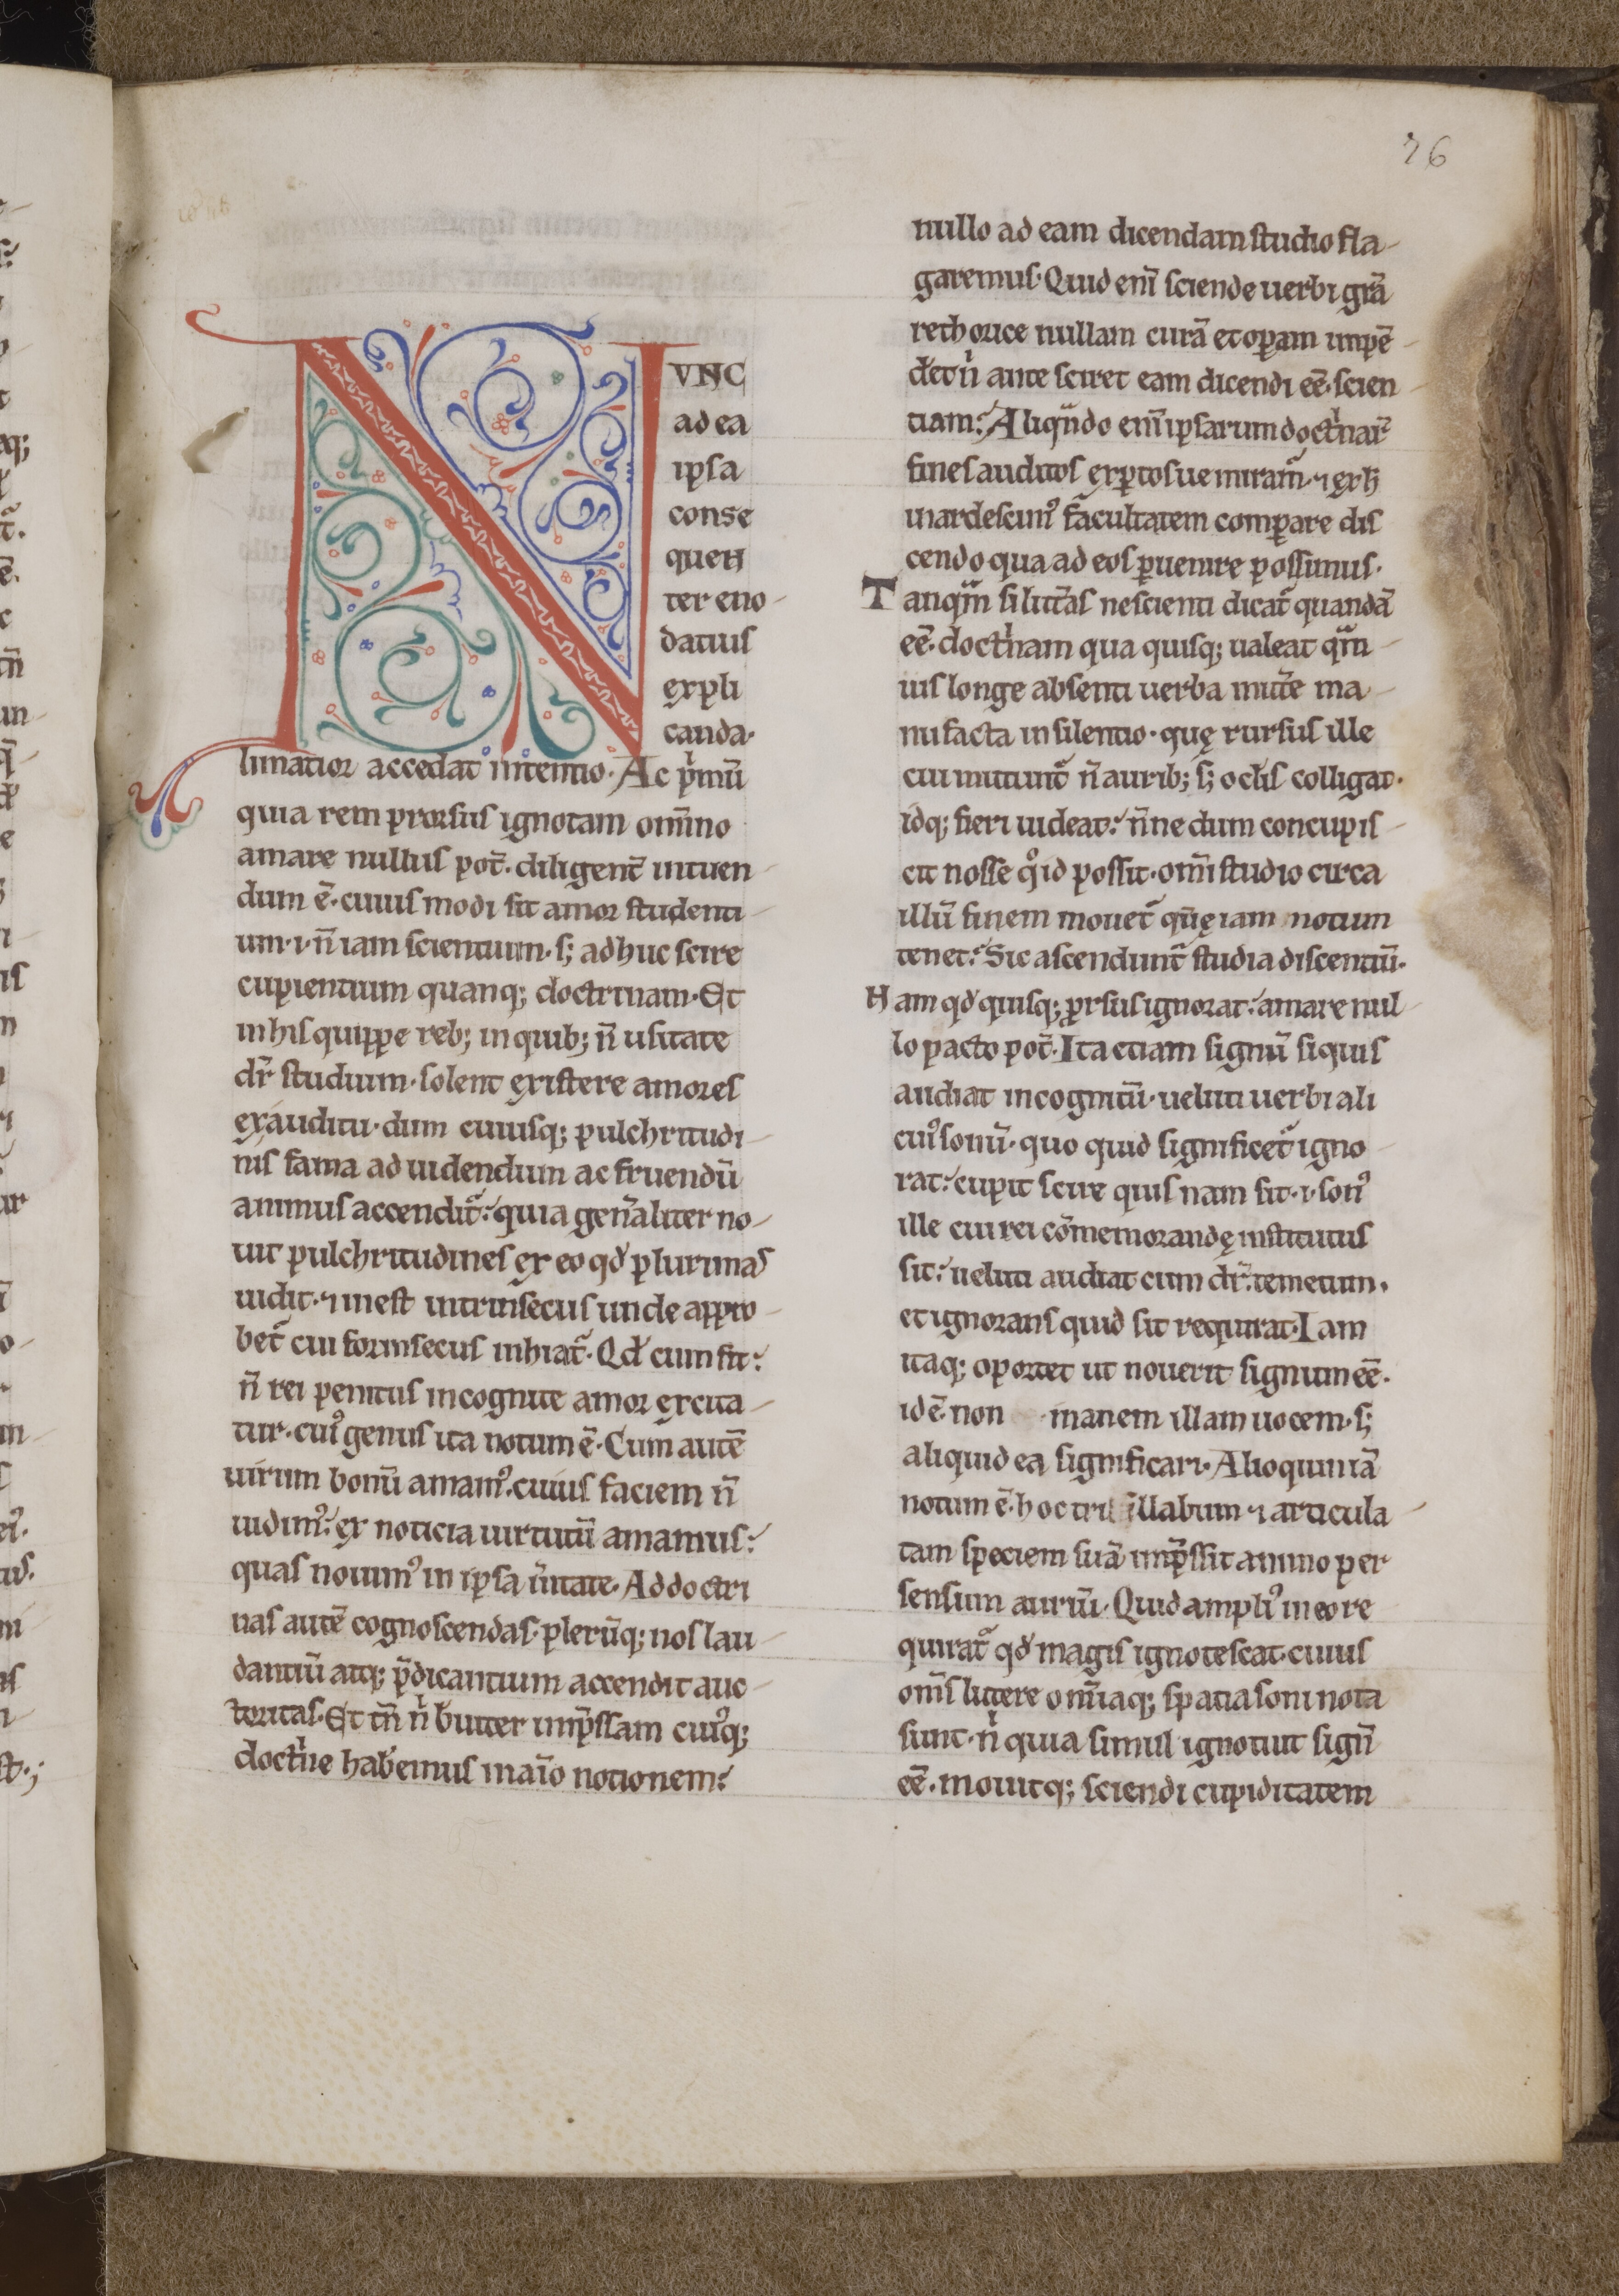 76
NVNC
ad ea
ipsa
conse
quen
ter eno-
datius
expli
canda·
limatior accedat intentio· Ac pͥmū
quia rem prorsus ignotam om̄ino
amare nullus pot̄· diligent̄ intuen-
dum ē· cuius modi sit amor studenti-
um· i· n̄ iam scientium· s; adhuc scire
cupientium quanq; doctrinam· Et
in his quippe reb; in quib; n̄ usitate
dr̄ studium· solent existere amores
ex auditu· dum cuiusq; pulchritudi-
nis fama ad uidendum ac fruendū
animus accendit᷑: quia gen̄aliter no-
uit pulchritudines ex eo qd̓ plurimas
uidit· ⁊ inest intrinsecus unde appro-
bet᷑ cui forinsecus inhiat᷑· Qd̓ cum fit:
n̄ rei penitus incognite amor excita-
tur· cuiꝰ genus ita notum ē· Cum autē
uirum bonū amamꝰ· cuius faciem n̄
uidimꝰ: ex noticia uirtutū amamus:
quas nouimꝰ in ipsa ūitate· Ad doctri
nas autē cognoscendas· plerūq; nos lau-
dantiū atq; p̄dicantium accendit auc-
toritas· Et tn̄ nͥ breuiter imp̄ssam cuiꝰq;
doctͥne habemus in aīo notionem:
nullo ad eam dicendam studio fla-
garemus· Quid enī sciende uerbi grā
rethorice nullam curā et oꝑam impē-
det nͥ ante sciret eam dicendi eē· scien
tiam: Aliqͣndo enī ipsarum doctͥnaꝝ
fines auditos exꝑtosue miramur᷑· ⁊ ex h̓
inardescimꝰ facultatem comꝑare dis
cendo qua ad eos ꝑuenire possimus·
Tanqͣm si litt̄as nescienti dicat᷑ quandā
eē· doctͥnam qua quisq; ualeat qͣm-
uis longe absenti uerba mitt̄e ma-
nu facta in silentio· quę rursus ille
cui mittunt᷑ n̄ aurib; s; oclis colligat·
idq; fieri uideat: n̄ne dum concupis-
cit nosse qͦ id possit· om̄i studio circa
illū finem mouet᷑ quē iam notum
tenet: Sic ascendunt᷑ studia discentiū·
Nam qd̓ quisq; ꝓrsus ignorat: amare nul
lo pacto pot̄· Ita etiam signū siquis
audiat incognitū· ueluti uerbi ali
cuiꝰ sonū· quo quid significet᷑ igno-
rat: cupit scire quis nam sit· i· sonꝰ
ille cui rei cōmemorandę institutus
sit: ueluti audiat cum dr̄· temetum·
et ignorans quid sit requirat· Iam
itaq; oportet ut nouerit signum eē·
id ē· non inanem illam uocem· s;
aliquid ea significari· Alioquin iā
notum ē· hoc trisillabum ⁊ articula-
tam speciem suā imp̄ssit animo per
sensum aurium· Quid ampliꝰ in eo re
quirat᷑ qd̓ magis ignotescat· cuius
om̄s littere om̄iaq; spatia soni nota
sunt· nͥ quia simul ignotuit sign̄
eē· mouitq; sciendi cupiditatem